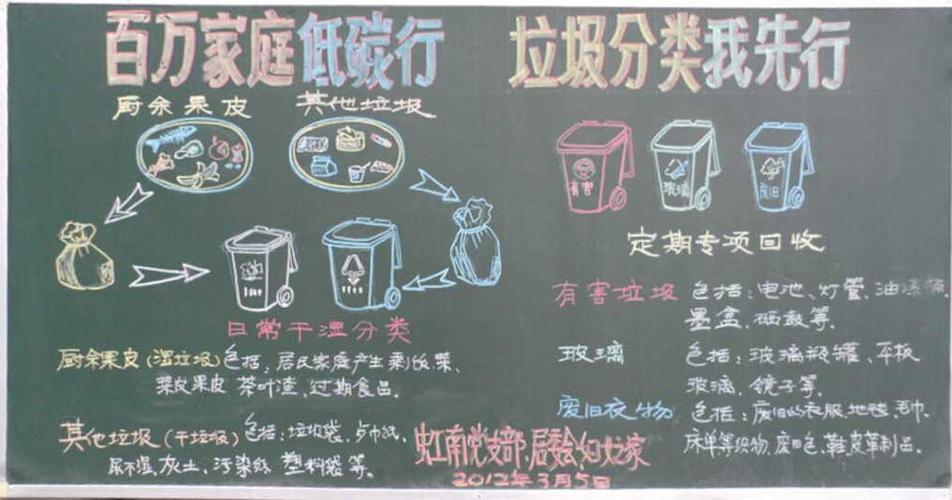 百万家庭低碳行
垃圾分类我先行
厨余果皮
其他垃圾
有害
玻璃
废旧
日常干湿分类
厨余果皮(湿垃圾)包括:居民家庭产生剩饭、菜、
菜皮果皮 茶叶渣、过期食品。
其他垃圾(干垃圾)包括:垃圾袋、纸、
尿不湿、灰土、污染纸 塑料袋等。
定期专项回收
有害垃圾 包括:电池、灯管、油漆桶
墨盒、硒鼓等。
玻璃 包括:玻璃瓶罐、平板
玻璃、镜子等。
废旧衣物 包括:废旧的衣服、地毯、毛巾、
床单等织物、废旧包、鞋皮革制品。
虹南党支部、居委会、妇女之家
2012年3月5日